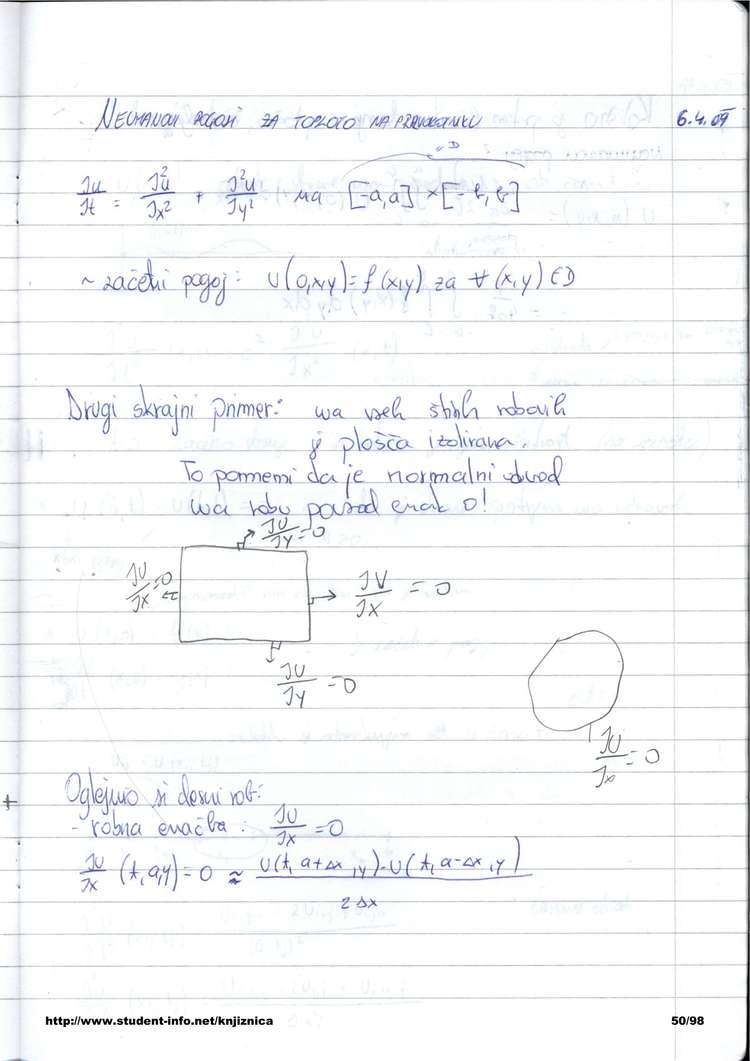 NEUMANOVI POGOJI ZA TOPLOTO NA PRAVOKOTNIKU 6.4.09
∂u/∂t = ∂²u/∂x² + ∂²u/∂y² na [-a,a] × [-b,b] = D
~ začetni pogoj: U(0,x,y) = f(x,y) za ∀(x,y) ∈ D
Drugi skrajni primer: na vseh štirih robovih
je plošča izolirana.
To pomeni da je normalni odvod
na robu povsod enak 0!
∂U/∂y = 0
∂U/∂x = 0
∂U/∂x = 0
∂U/∂y = 0
∂U/∂x = 0
Oglejmo si desni rob:
- robna enačba: ∂U/∂x = 0
∂U/∂x (t,a,y) = 0 ≈ (U(t, a+Δx, y) - U(t, a-Δx, y)) / 2Δx
http://www.student-info.net/knjiznica 50/98